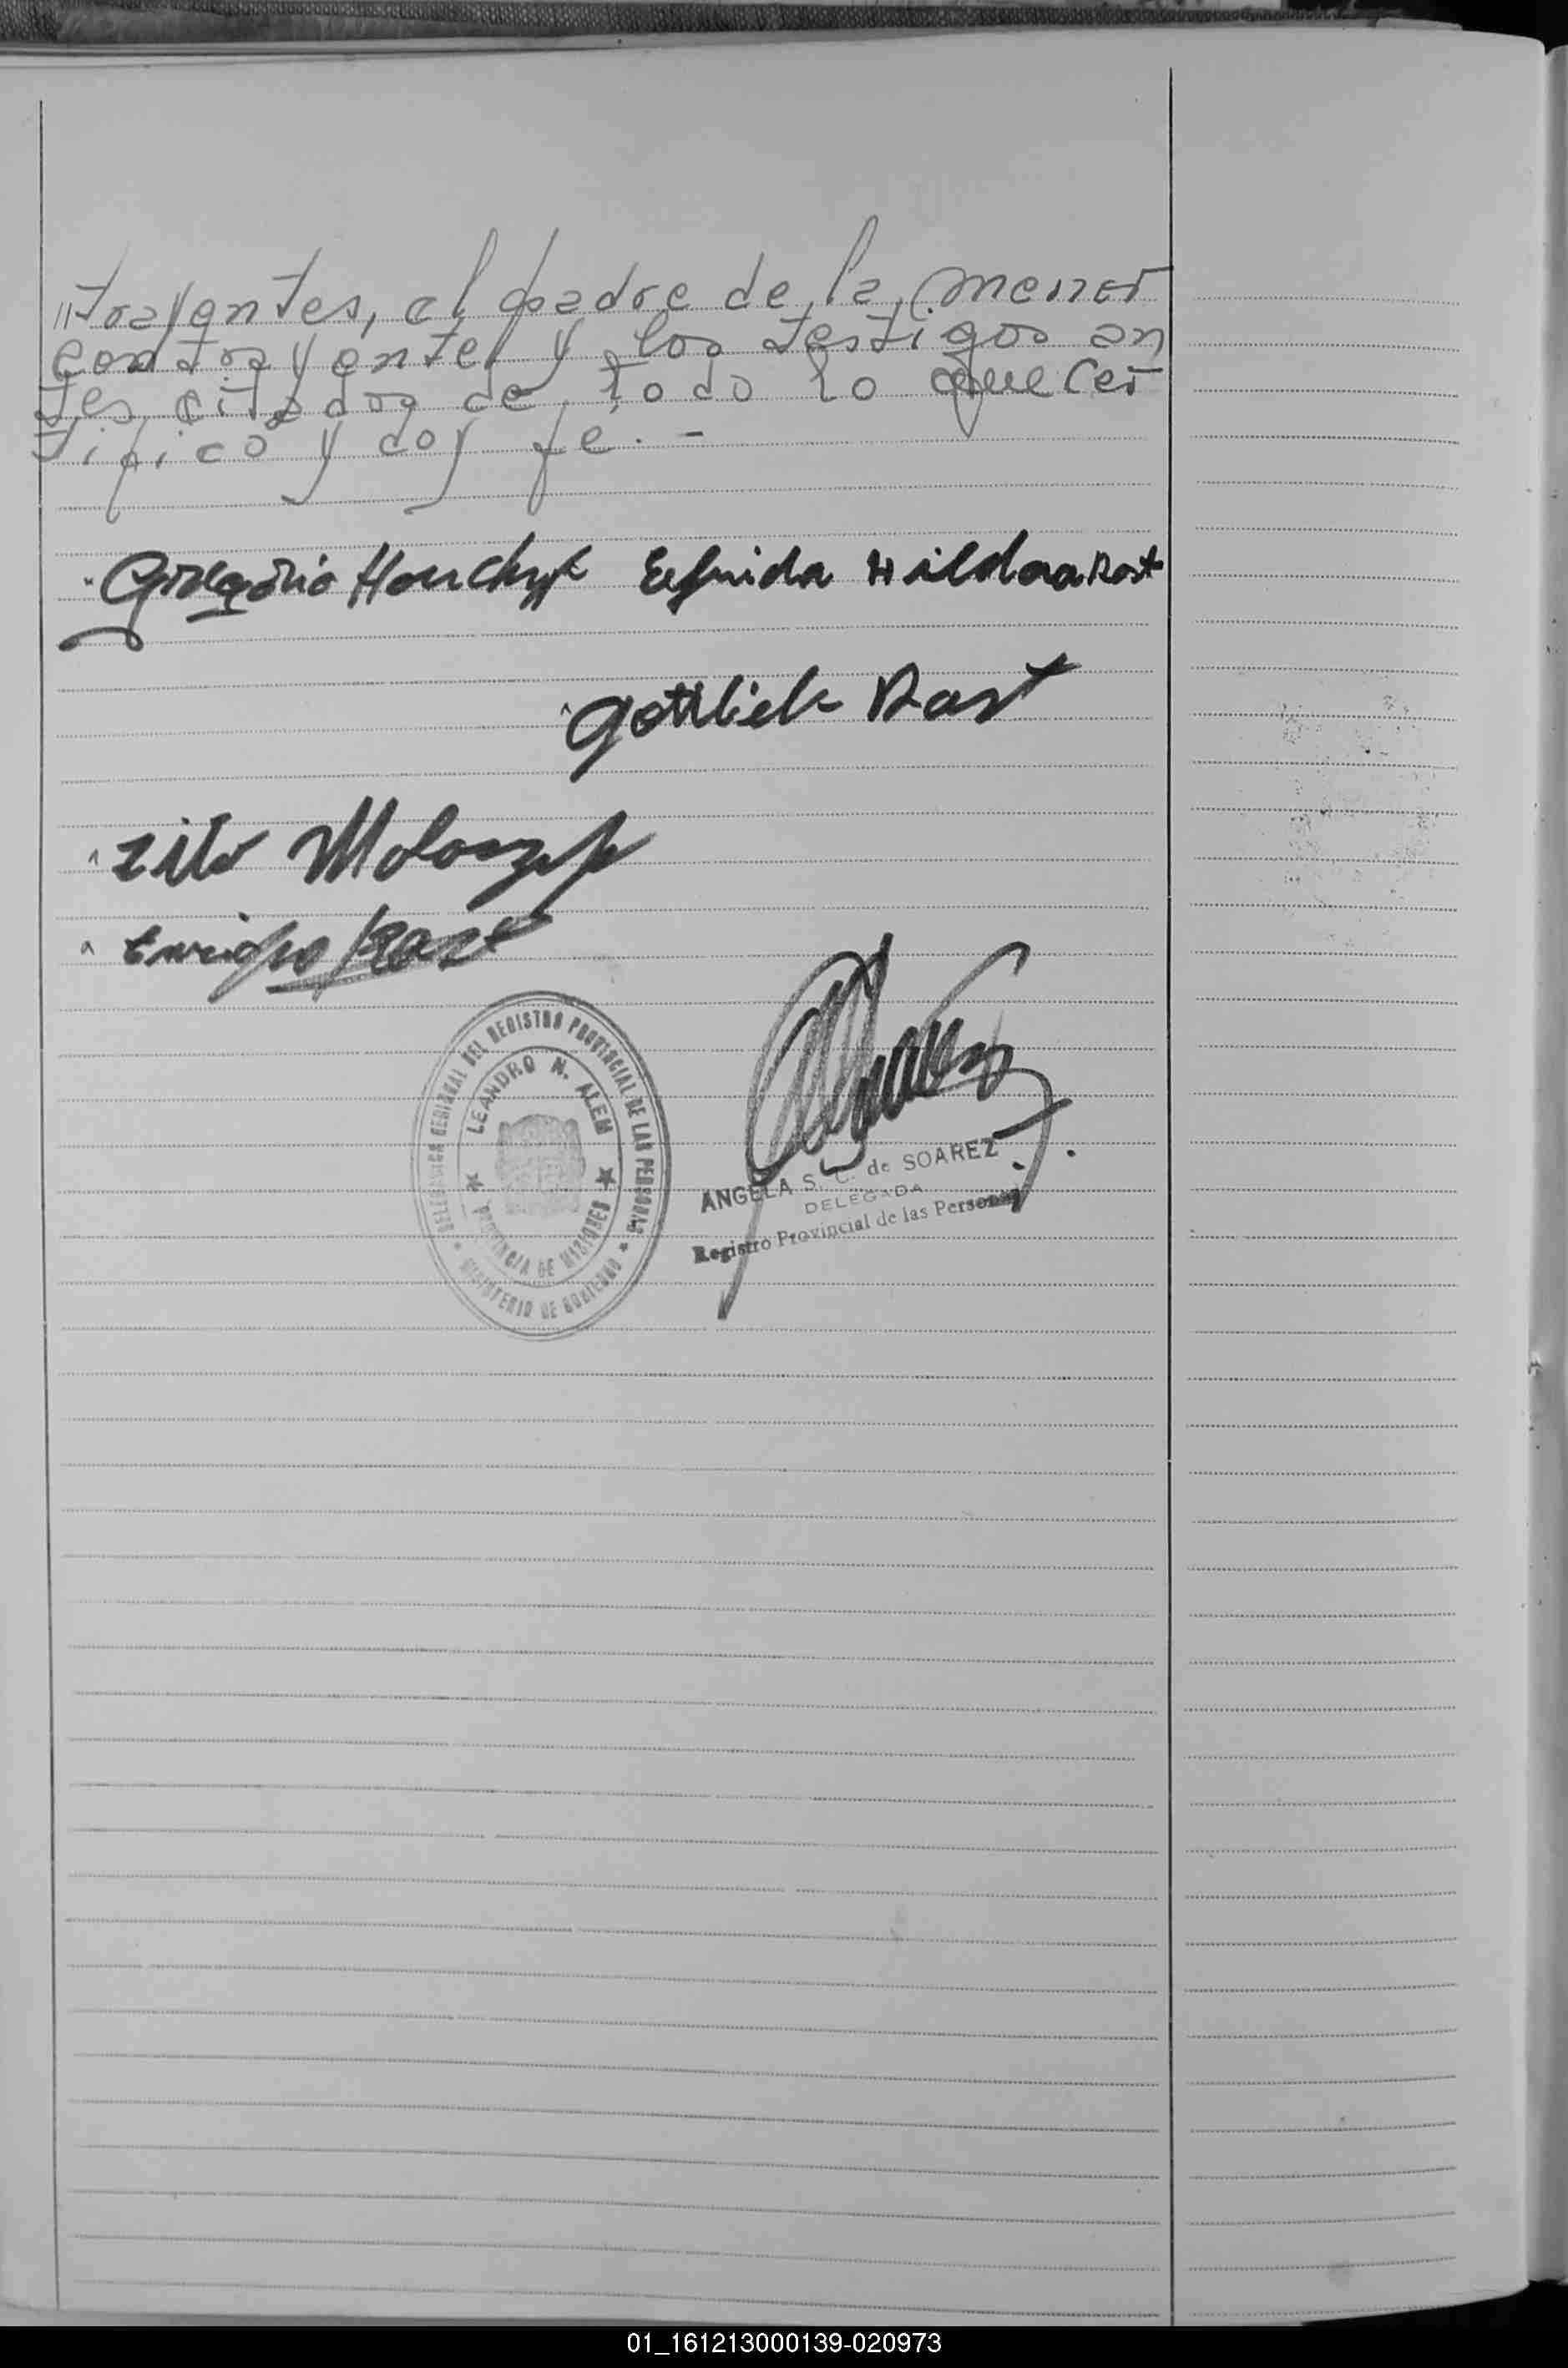 "trayentes, el padre de la menor
contrayente y los testigos an
tes citados de todo lo que cer
tifico y doy fe. -
Gregorio Elfrida Hildaa Rast
Gottlieb Rast
Enrique Rast
DELEGACION REGIONAL DEL REGISTRO PROVINCIAL DE LAS PERSONAS
LEANDRO N. ALEM
PROVINCIA DE MISIONES
MINISTERIO DE GOBIERNO
ANGELA S. C. de SOAREZ
DELEGADA
Registro Provincial de las Personas
01_161213000139-020973